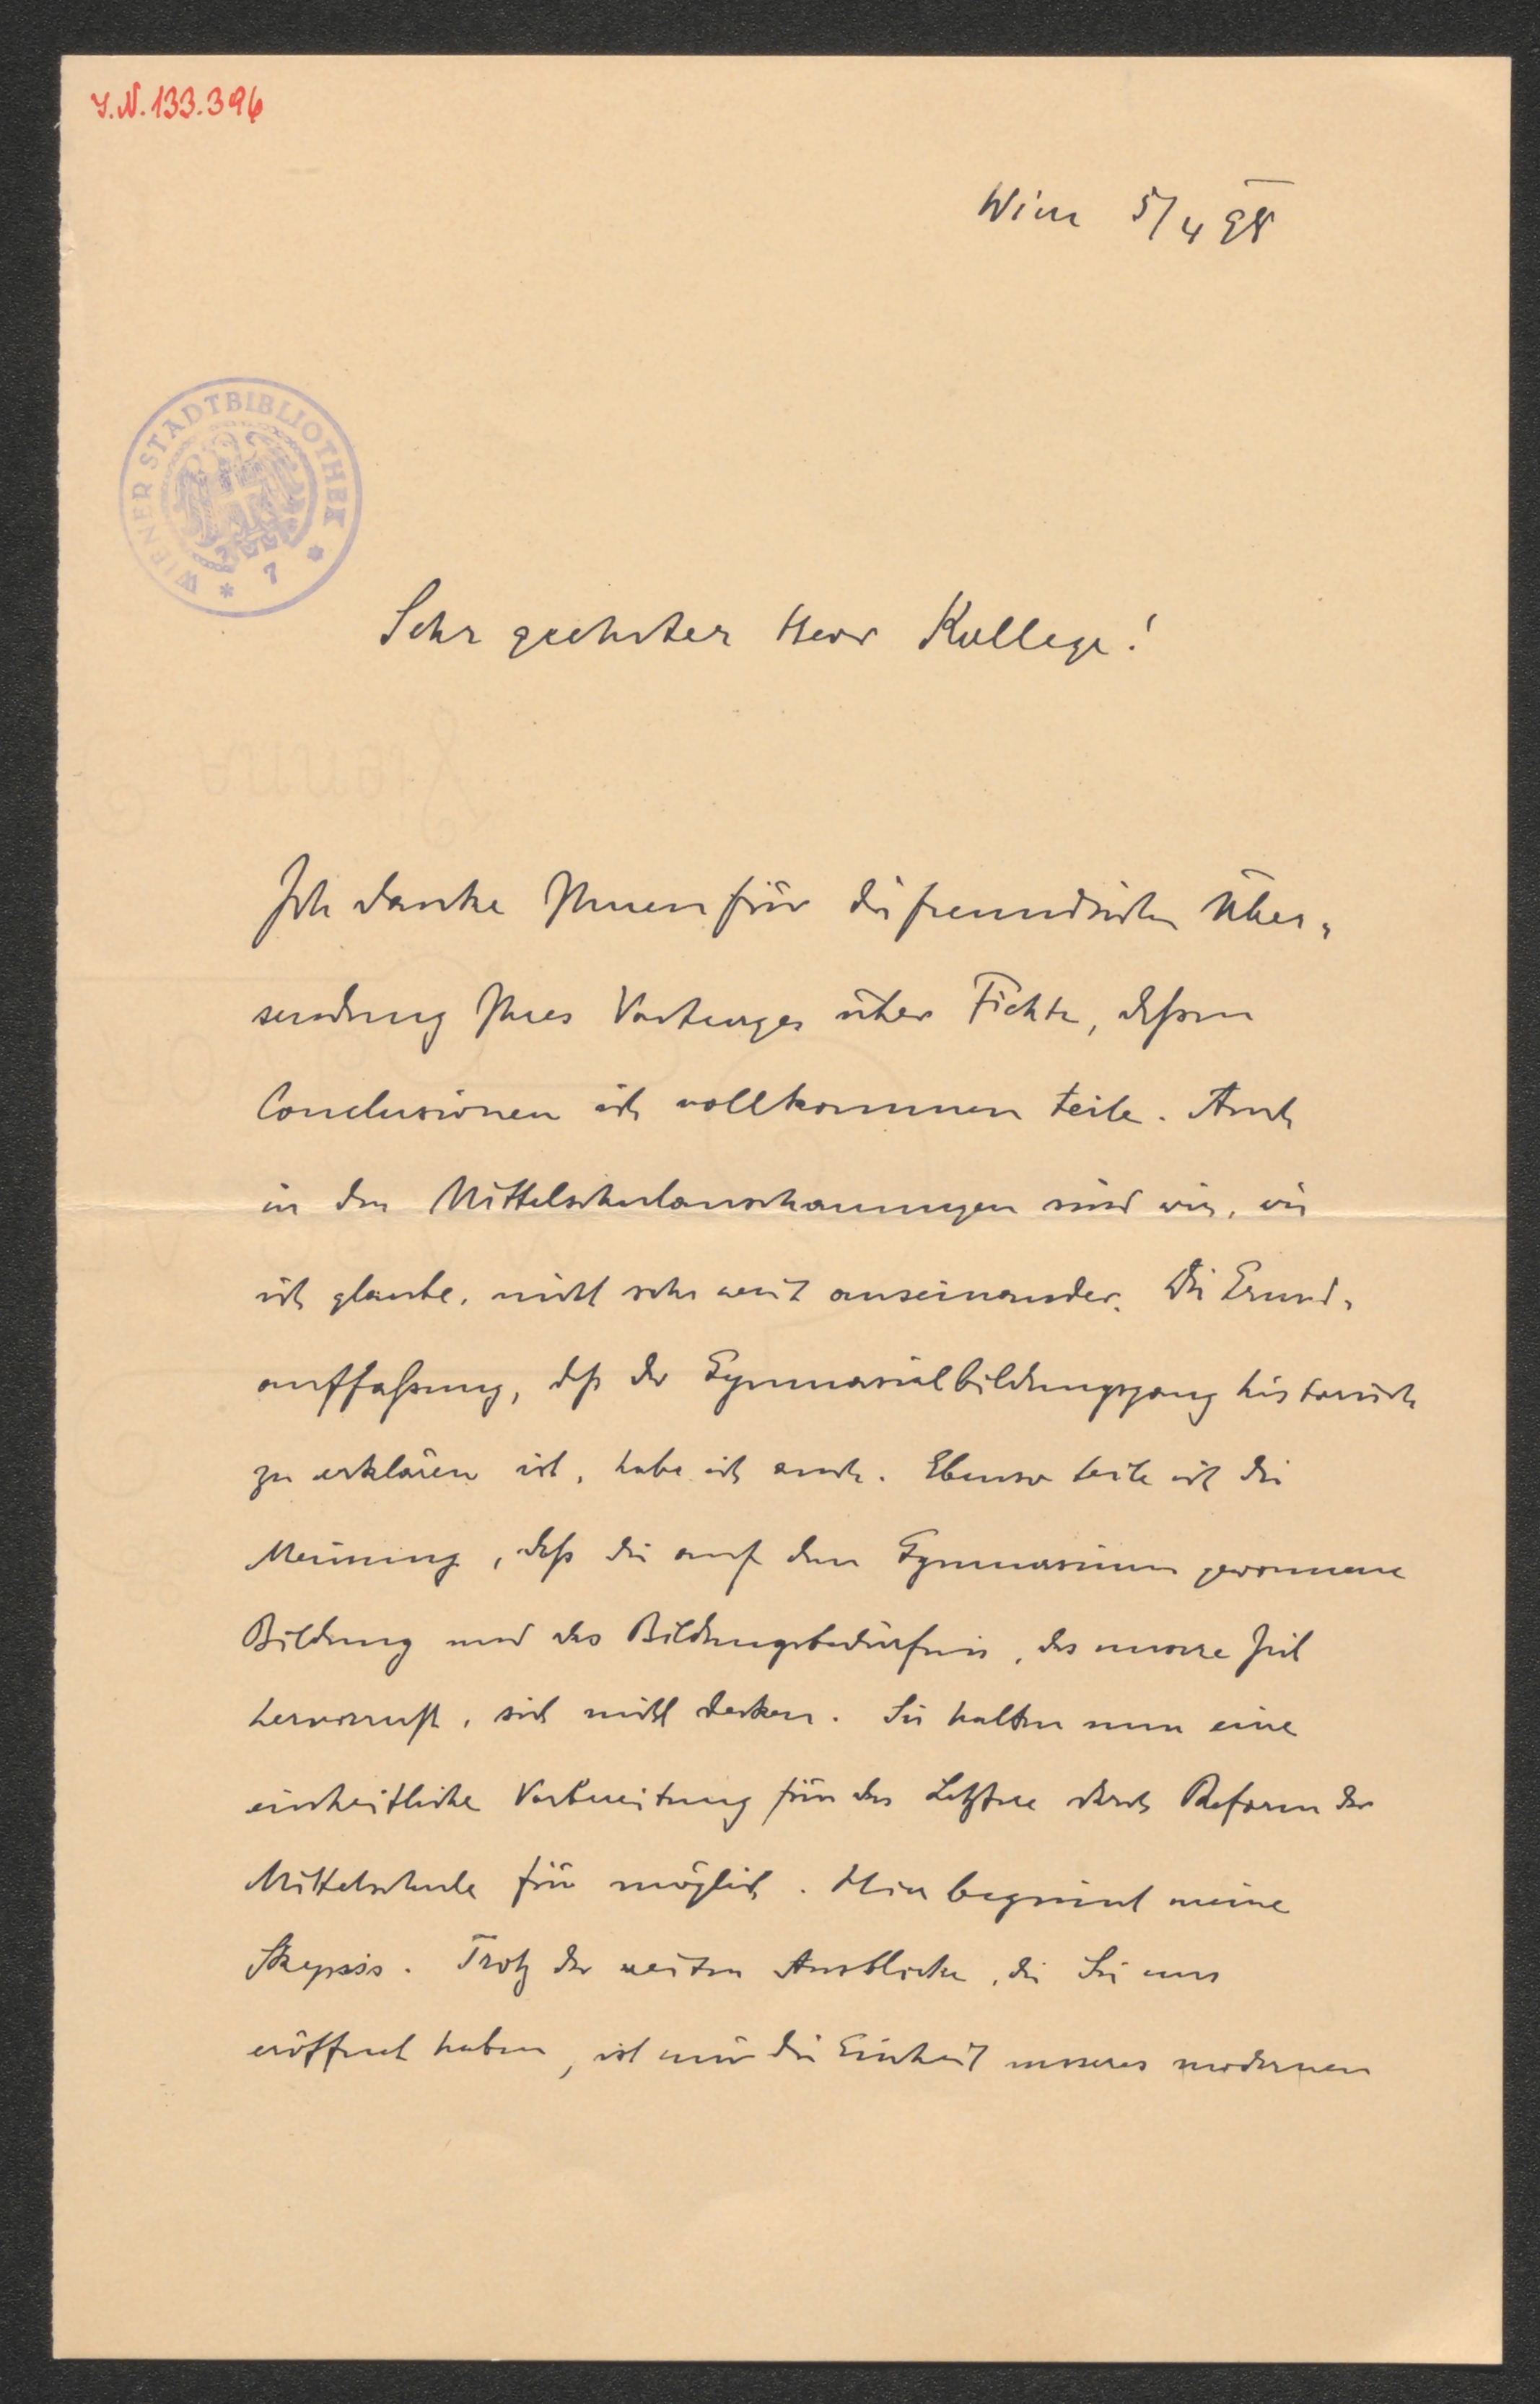 I.N. 133.396
Wien 5/4 98
WIENER STADTBIBLIOTHEK * 7 *
Sehr geehrter Herr Kollege!
Ich danke Ihnen für die freundliche Über-
sendung Ihres Vortrages über Fichte, dessen
Conclusionen ich vollkommen teile. Auch
in den Mittelschulanschauungen sind wir, wie
ich glaube, nicht sehr weit auseinander. Die Grund-
auffaßung, daß der Gymnasialbildungsgang historisch
zu erklären ist, habe ich auch. Ebenso teile ich die
Meinung, daß die auf dem Gymnasium gewonnene
Bildung und das Bildungsbedürfnis, das unsere Zeit
hervorruft, sich nicht decken. Sie halten nun eine
einheitliche Vorbereitung für das Letztere durch Reform der
Mittelschule für möglich. Hier beginnt meine
Skepsis. Trotz der weiten Ausblicke, die Sie uns
eröffnet haben, ist mir die Einheit unseres modernen